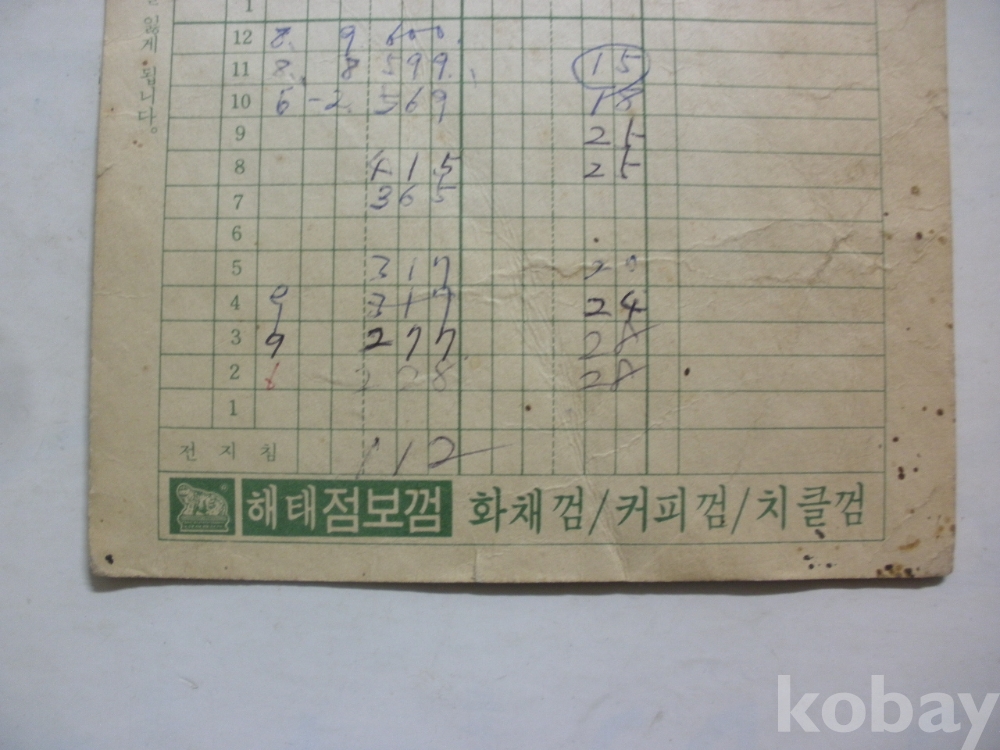 잃게 됩니다.
1
12 8 9 600
11 8 8 599 15
10 6 -2 569 18
9 25
8 415 25
7 365
6
5 317
4 9 317 24
3 9 277 28
2 6 28
1
전지침 112
해태점보껌 화채껌/커피껌/치클껌
kobay